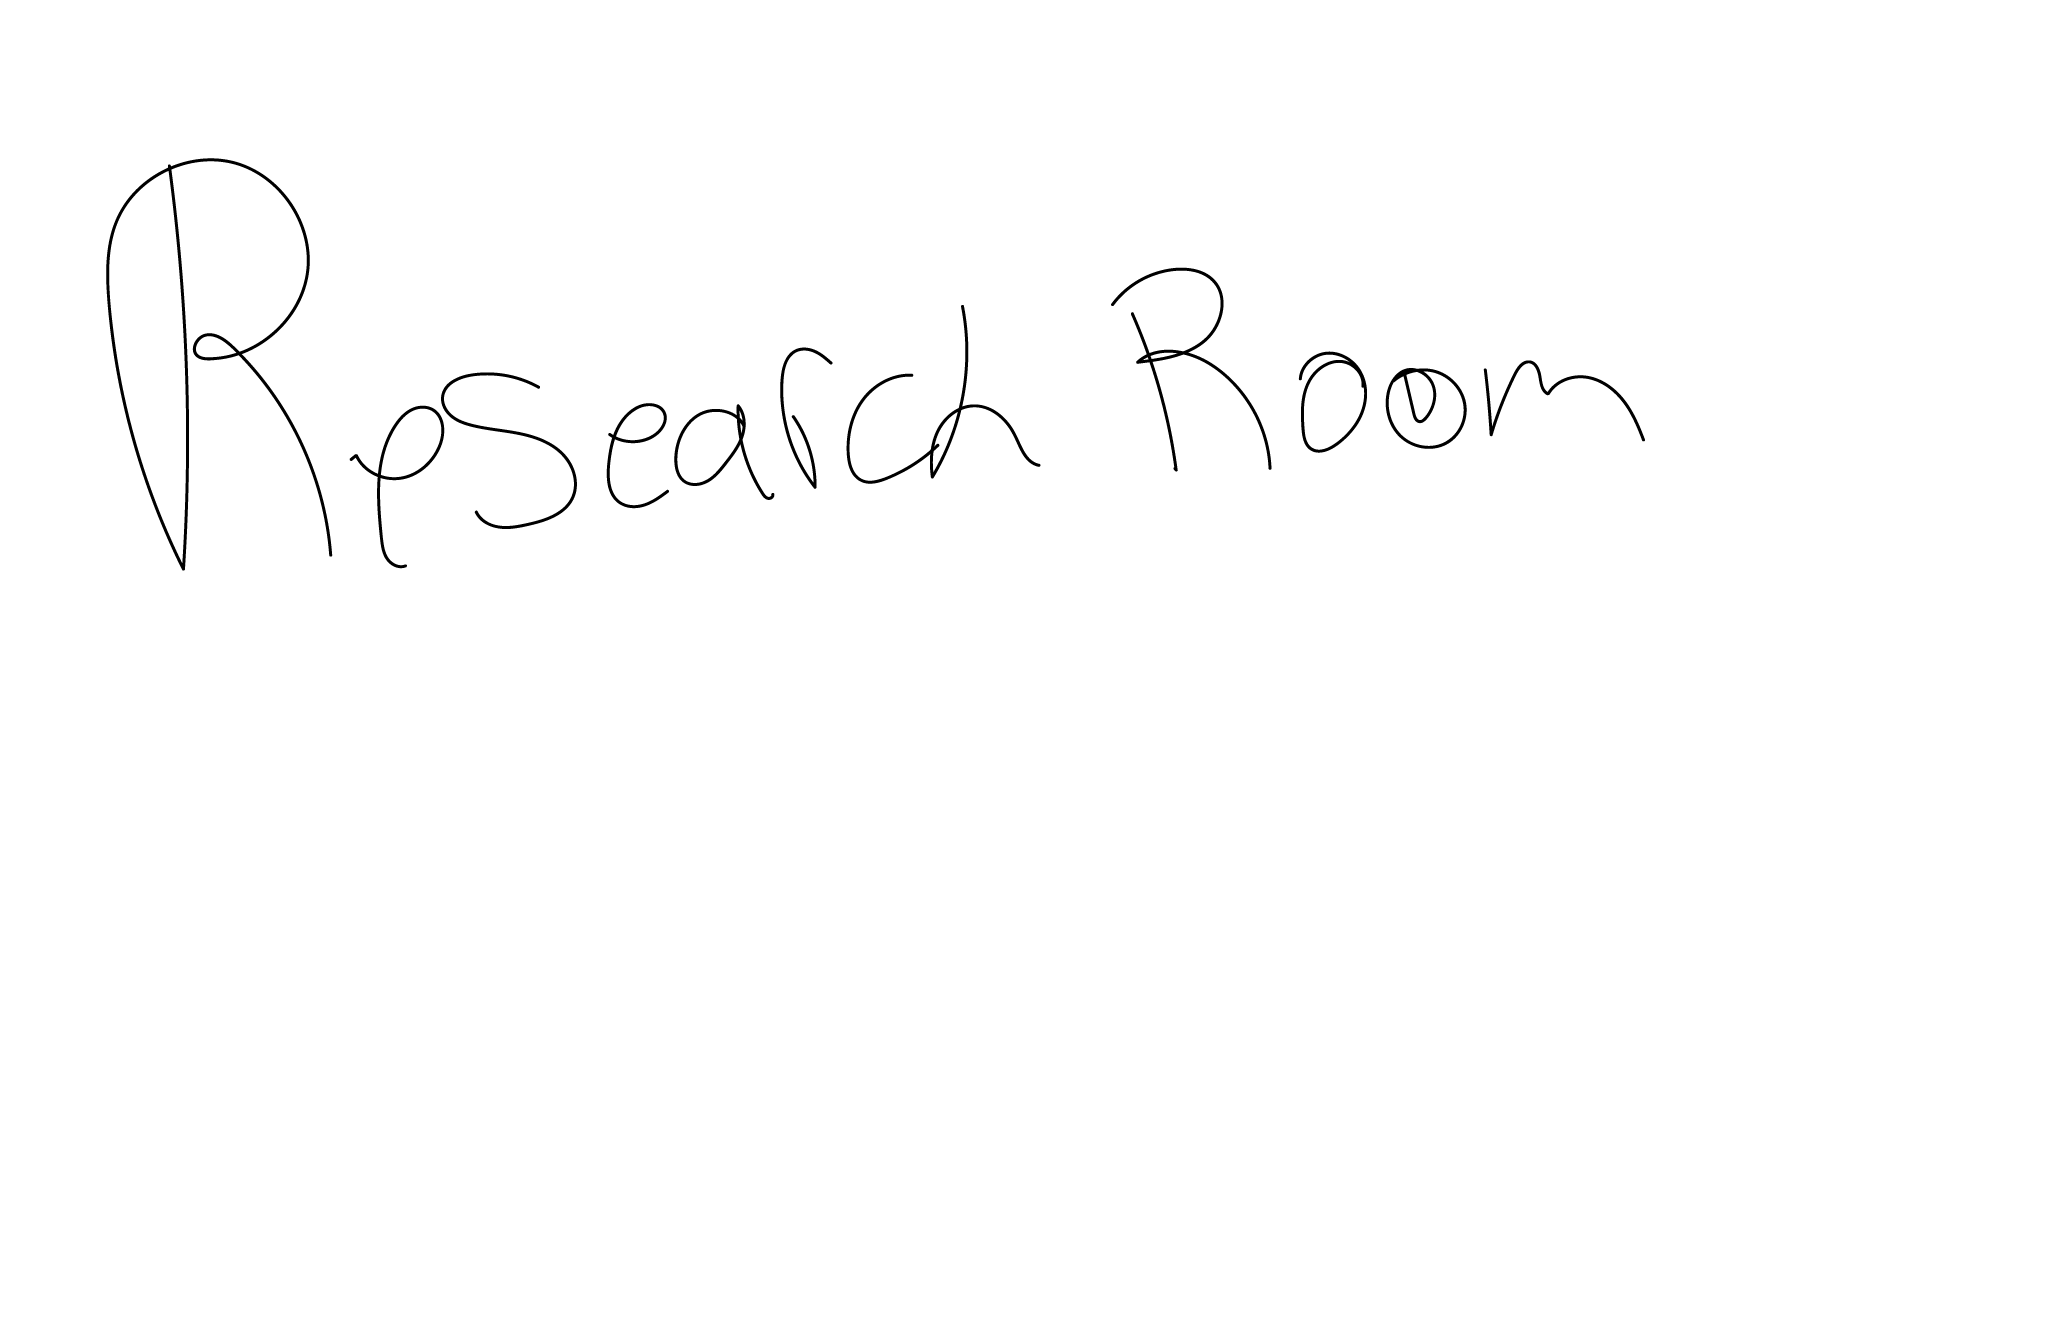 Research Room